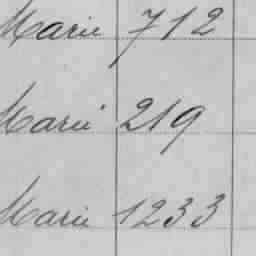 Marie 712
Marie 219
Marie 1233